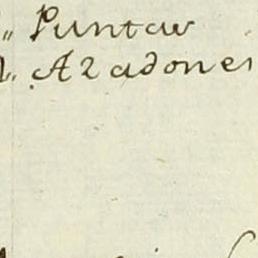 „ Puntas
„ Azadones